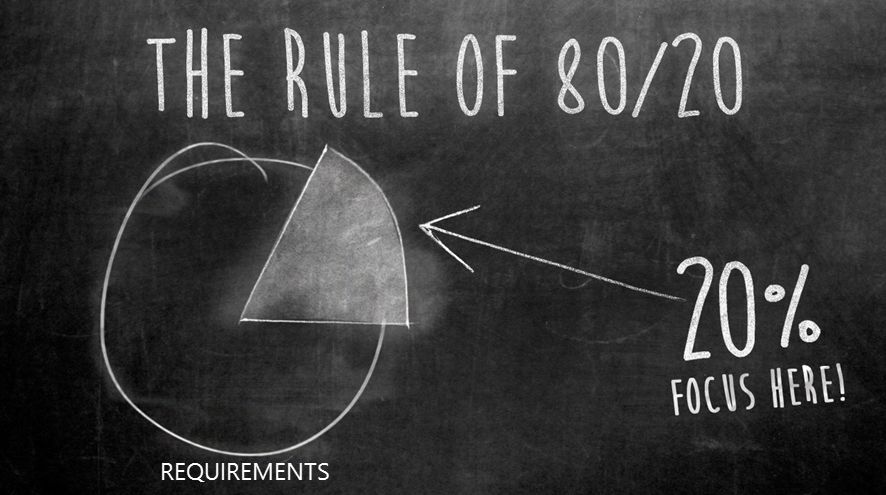 THE RULE OF 80/20
20%
FOCUS HERE!
REQUIREMENTS